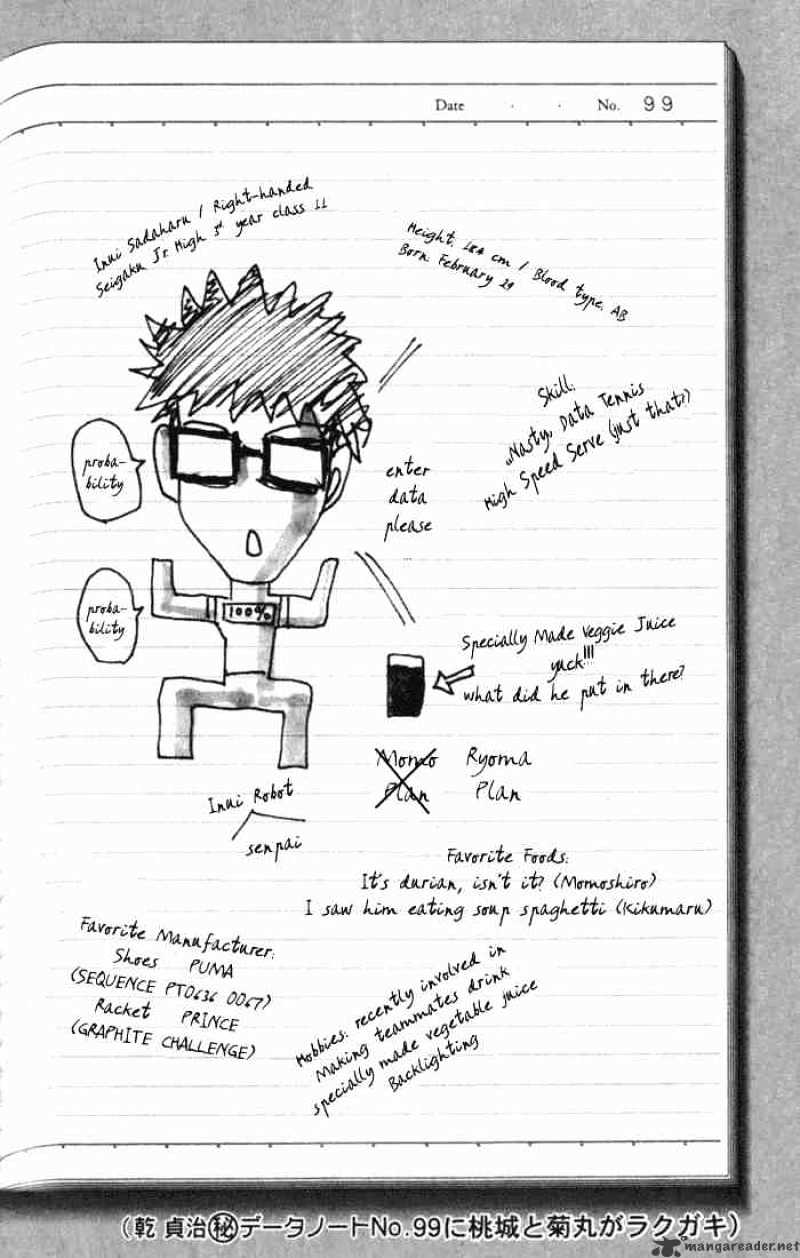 Date . . No. 99
Inui Sadaharu / Right-handed
Seigaku Jr. High 3rd year class 11
Height: 184 cm / Blood type: AB
Born: February 29
Skill:
„Nasty„ Data Tennis
High Speed Serve (just that?)
proba-
bility
enter
data
please
proba-
bility
100%
Specially Made Veggie Juice
yuck!!!
what did he put in there?
Momo Ryoma
Plan Plan
Inui Robot
senpai
Favorite Foods:
It's durian, isn't it? (Momoshiro)
I saw him eating soup spaghetti (Kikumaru)
Favorite Manufacturer:
Shoes PUMA
(SEQUENCE PT0636 0067)
Racket PRINCE
(GRAPHITE CHALLENGE)
Hobbies: recently involved in
Making teammates drink
specially made vegetable juice
Backlighting
(乾 貞治㊙データノートNo.99に桃城と菊丸がラクガキ)
mangareader.net